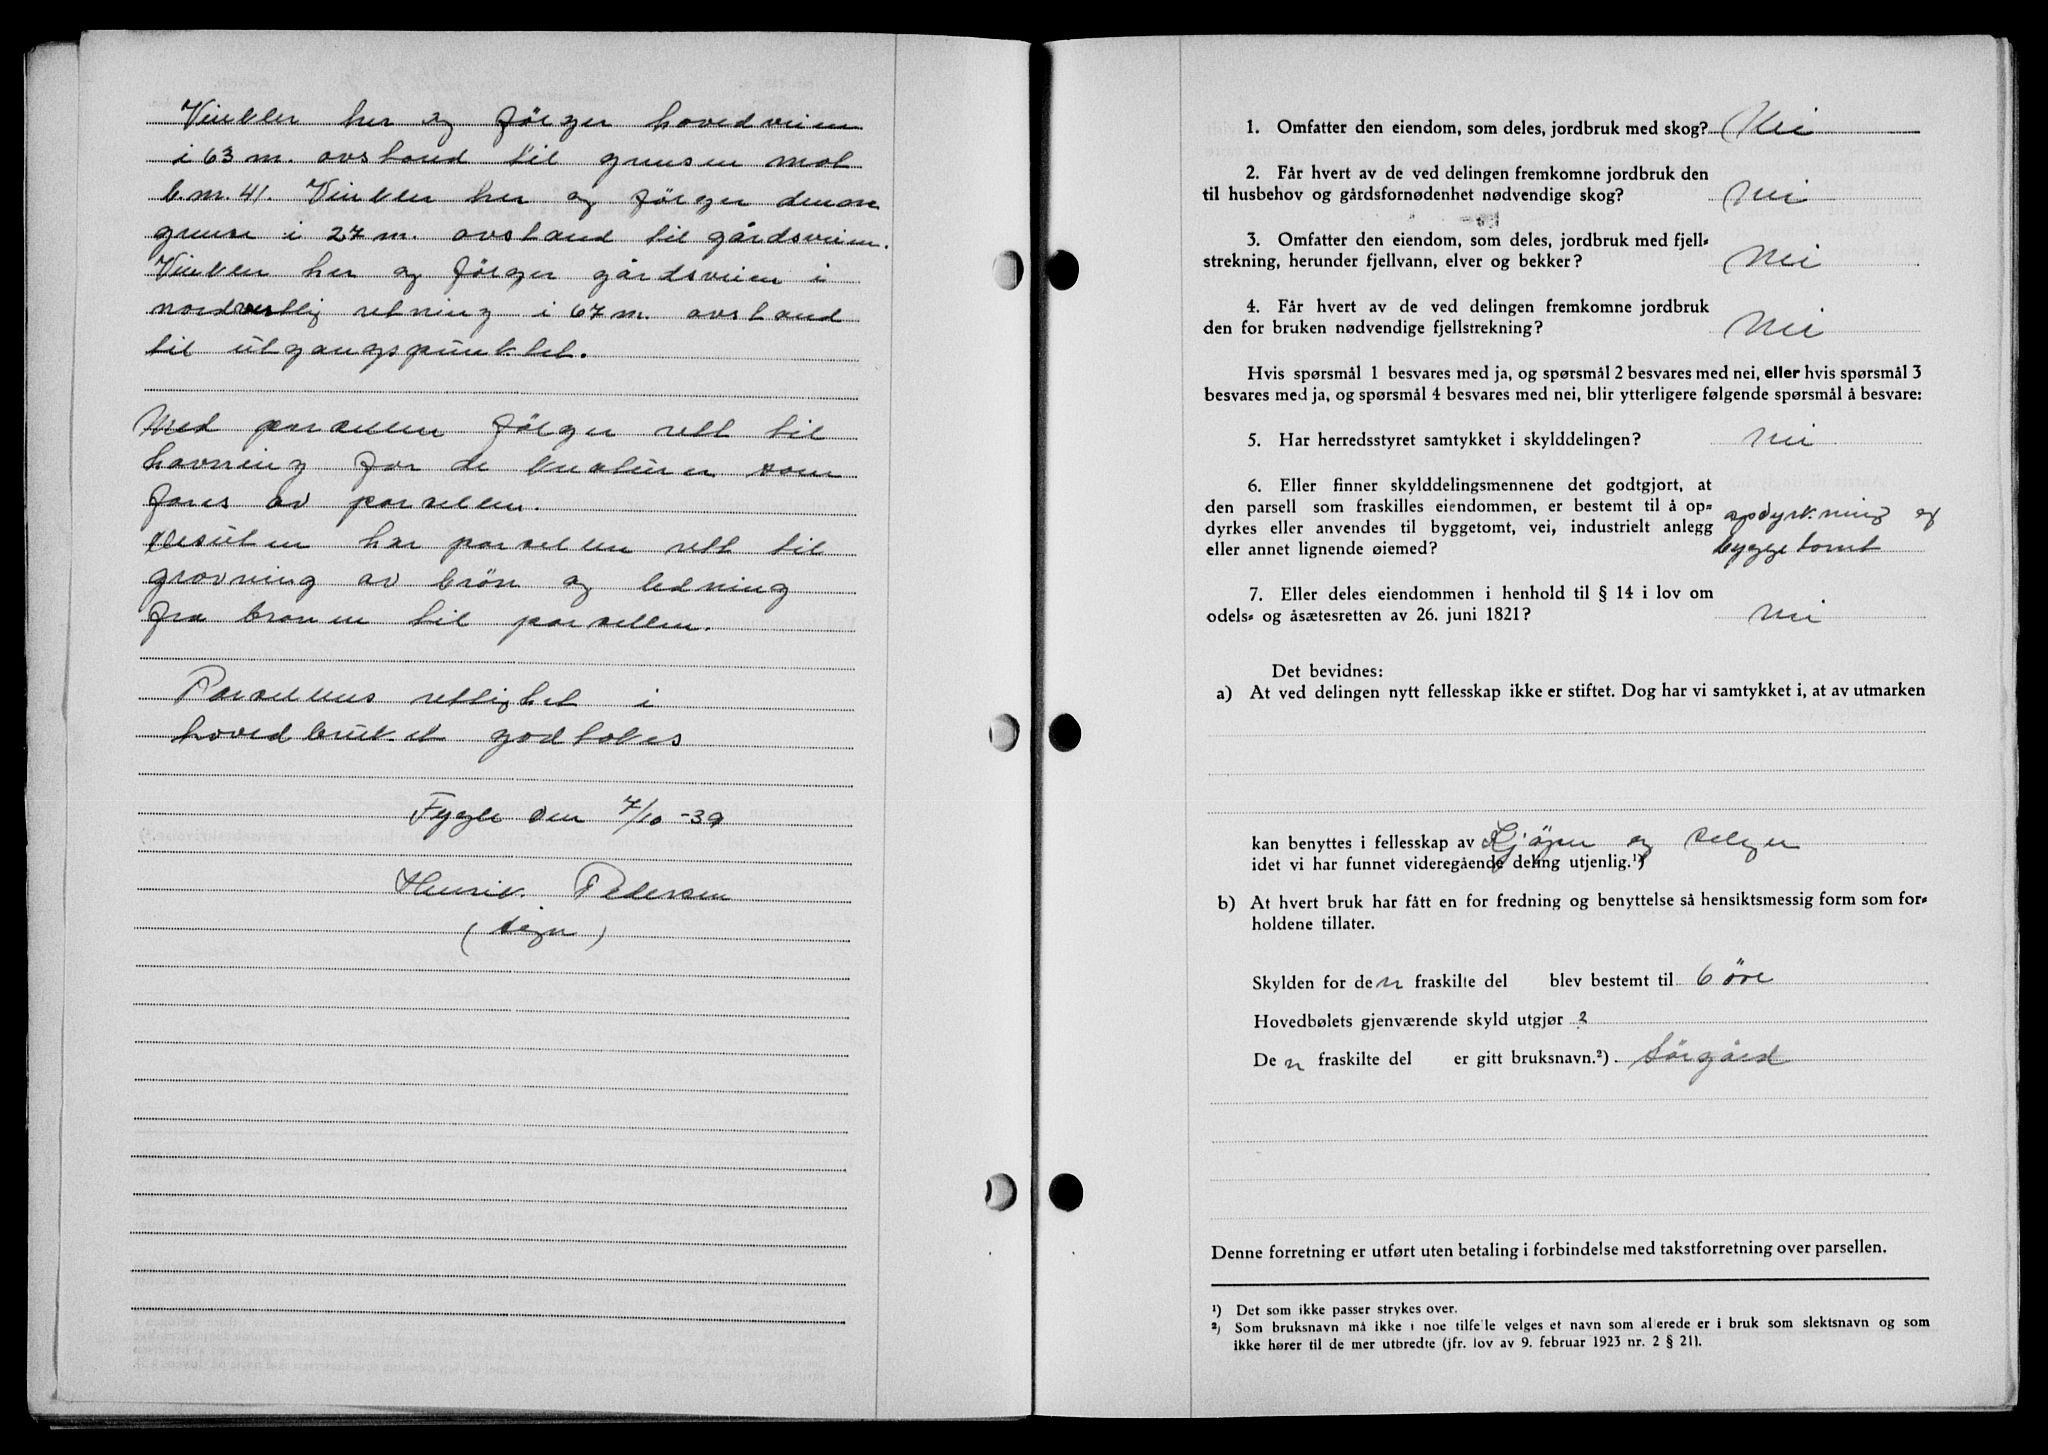 Vinkler her og følger hovedveien
i 63 m. avstand til grensen mot
b.m. 41. Vinkler her og følger denne
grense i 27 m. avstand til gårdsveien.
Vinkler her og følger gårdsveien i
nordvestlig retning i 67 m. avstand
til utgangspunktet.
Med parsellen følger rett til
havning for de kreaturer som
fores av parsellen.
Desuten har parsellen rett til
gravning av brøn og ledning
fra brønen til parsellen.
Parsellens rettighet i
hovedbruket godtokes
Fygle den 7/10 -39
Henrik Pedersen
(sign)
1. Omfatter den eiendom, som deles, jordbruk med skog? Nei
2. Får hvert av de ved delingen fremkomne jordbruk den
til husbehov og gårdsfornødenhet nødvendige skog? Nei
3. Omfatter den eiendom, som deles, jordbruk med fjell=
strekning, herunder fjellvann, elver og bekker? Nei
4. Får hvert av de ved delingen fremkomne jordbruk
den for bruken nødvendige fjellstrekning? Nei
Hvis spørsmål 1 besvares med ja, og spørsmål 2 besvares med nei, eller hvis spørsmål 3
besvares med ja, og spørsmål 4 besvares med nei, blir ytterligere følgende spørsmål å besvare:
5. Har herredsstyret samtykket i skylddelingen? nei
6. Eller finner skylddelingsmennene det godtgjort, at
den parsell som fraskilles eiendommen, er bestemt til å op=
dyrkes eller anvendes til byggetomt, vei, industrielt anlegg opdyrkning og
eller annet lignende øiemed? byggetomt
7. Eller deles eiendommen i henhold til § 14 i lov om
odels= og åsætesretten av 26. juni 1821? nei
Det bevidnes:
a) At ved delingen nytt fellesskap ikke er stiftet. Dog har vi samtykket i, at av utmarken
kan benyttes i fellesskap av Kjøper og selger
idet vi har funnet videregående deling utjenlig.¹)
b) At hvert bruk har fått en for fredning og benyttelse så hensiktsmessig form som for=
holdene tillater.
Skylden for den fraskilte del blev bestemt til 6 öre
Hovedbølets gjenværende skyld utgjør 2
Den fraskilte del er gitt bruksnavn.²) Sörgård
Denne forretning er utført uten betaling i forbindelse med takstforretning over parsellen.
¹) Det som ikke passer strykes over.
²) Som bruksnavn må ikke i noe tilfelle velges et navn som allerede er i bruk som slektsnavn og som
ikke hører til de mer utbredte (jfr. lov av 9. februar 1923 nr. 2 § 21).